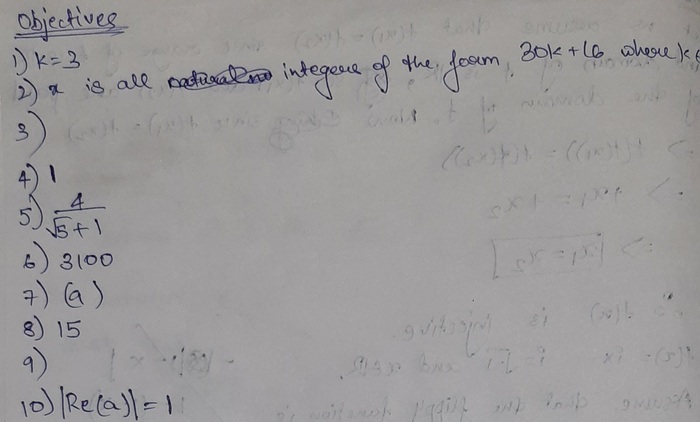 Objectives
1) k=3
2) x is all integers of the form 30k+16 where k
3)
4) 1
5) 4/(√5+1)
6) 3100
7) (a)
8) 15
9)
10) |Re(a)|=1